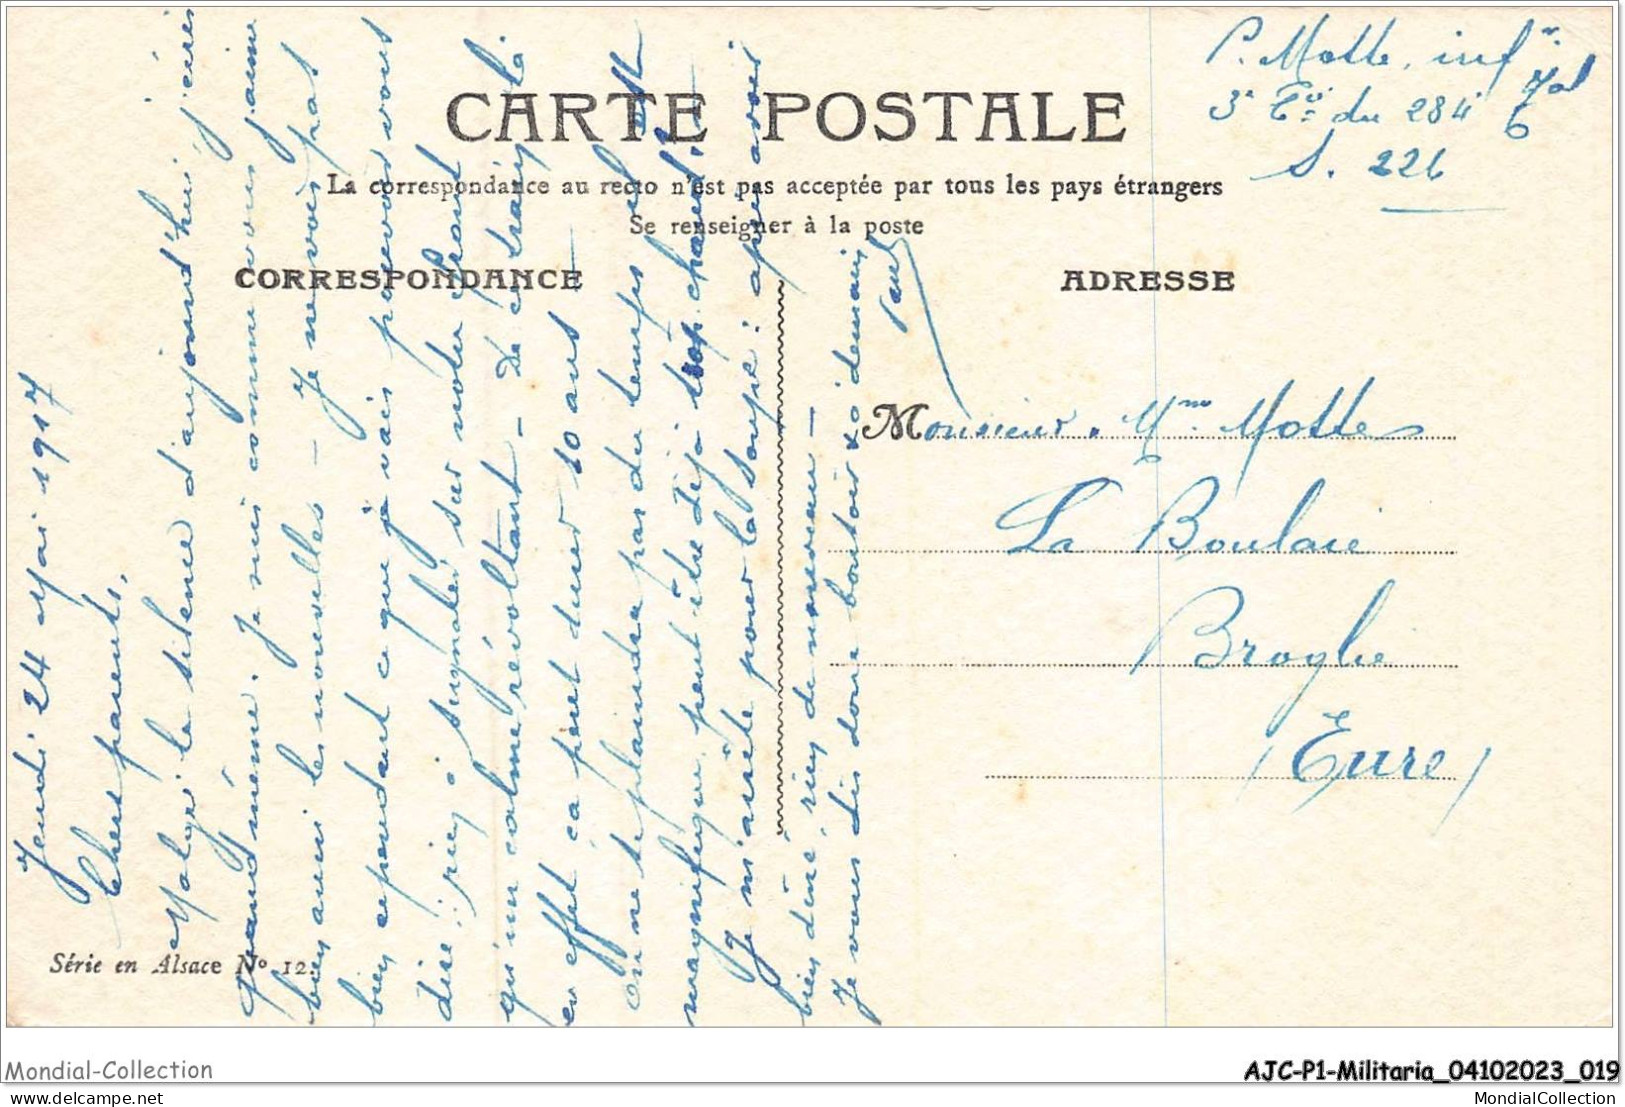 P. Motte, infr
3e Cie du 284e
S. 226
CARTE POSTALE
La correspondance au recto n'est pas acceptée par tous les pays étrangers
Se renseigner à la poste
CORRESPONDANCE
ADRESSE
Jeudi 24 Mai 1917
Chers parents,
Malgré le silence d'aujourd'hui, j'écris
quand même. Je suis comme vous j'aime
bien avoir les nouvelles – Je ne vois pas
bien cependant ce que je vais pouvoir vous
dire : rien à signaler sur notre front
qu'un calme révoltant – De ce train là
en effet ça peut durer 10 ans
On ne se plaindra pas du temps, il est
magnifique, peut être déjà trop chaud.
Je m'arrête pour la soupe : après avoir
bien dîné, rien de nouveau –
Je vous dis donc bonsoir & à demain
Paul
Monsieur. Mme Motte
La Boulaie
Broglie
(Eure)
Série en Alsace No 12.
Mondial-Collection
AJC-P1-Militaria_04102023_019
delcampe.net
MondialCollection